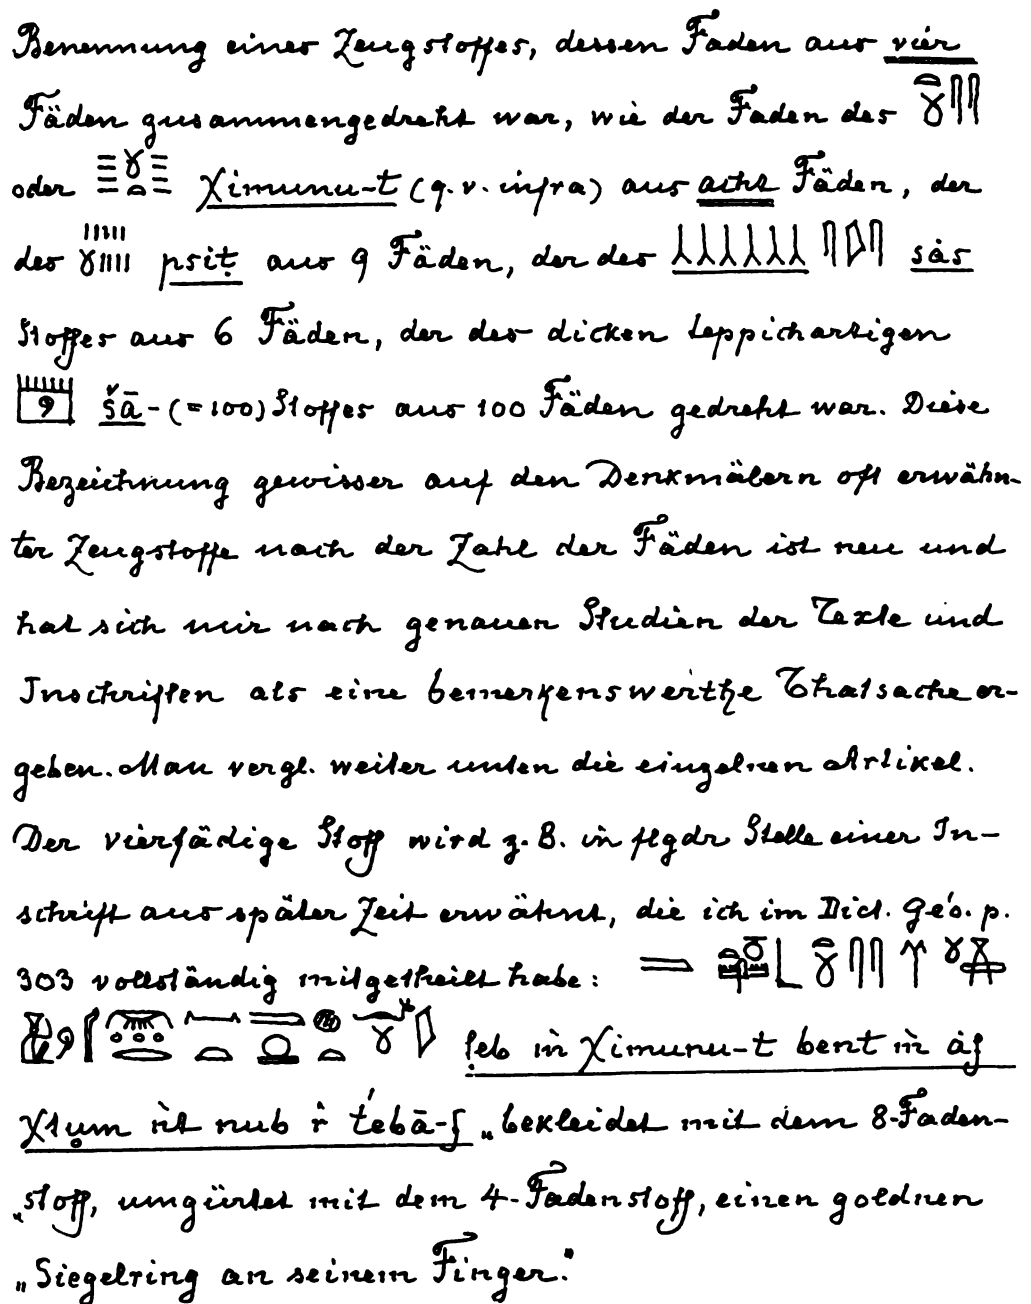 Benennung eines Zeugstoffes, dessen Faden aus vier
Fäden zusammengedreht war, wie der Faden des
oder Ximunu-t (q. v. infra) aus acht Fäden, der
des psit aus 9 Fäden, der des sȧs
Stoffes aus 6 Fäden, der des dicken teppichartigen
šā-(=100) Stoffes aus 100 Fäden gedreht war. Diese
Bezeichnung gewisser auf den Denkmälern oft erwähn-
ter Zeugstoffe nach der Zahl der Fäden ist neu und
hat sich mir nach genauen Studien der Texte und
Inschriften als eine bemerkenswerthe Thatsache er-
geben. Man vergl. weiter unten die einzelnen Artikel.
Der vierfädige Stoff wird z. B. in flgdr Stelle einer In-
schrift aus später Zeit erwähnt, die ich im Dict. Géo. p.
303 vollständig mitgetheilt habe:
ṭeb in Ximunu-t bent
nub „bekleidet mit dem 8-Faden-
„stoff, umgürtet mit dem 4-Fadenstoff, einen goldnen
„Siegelring an seinem Finger.“